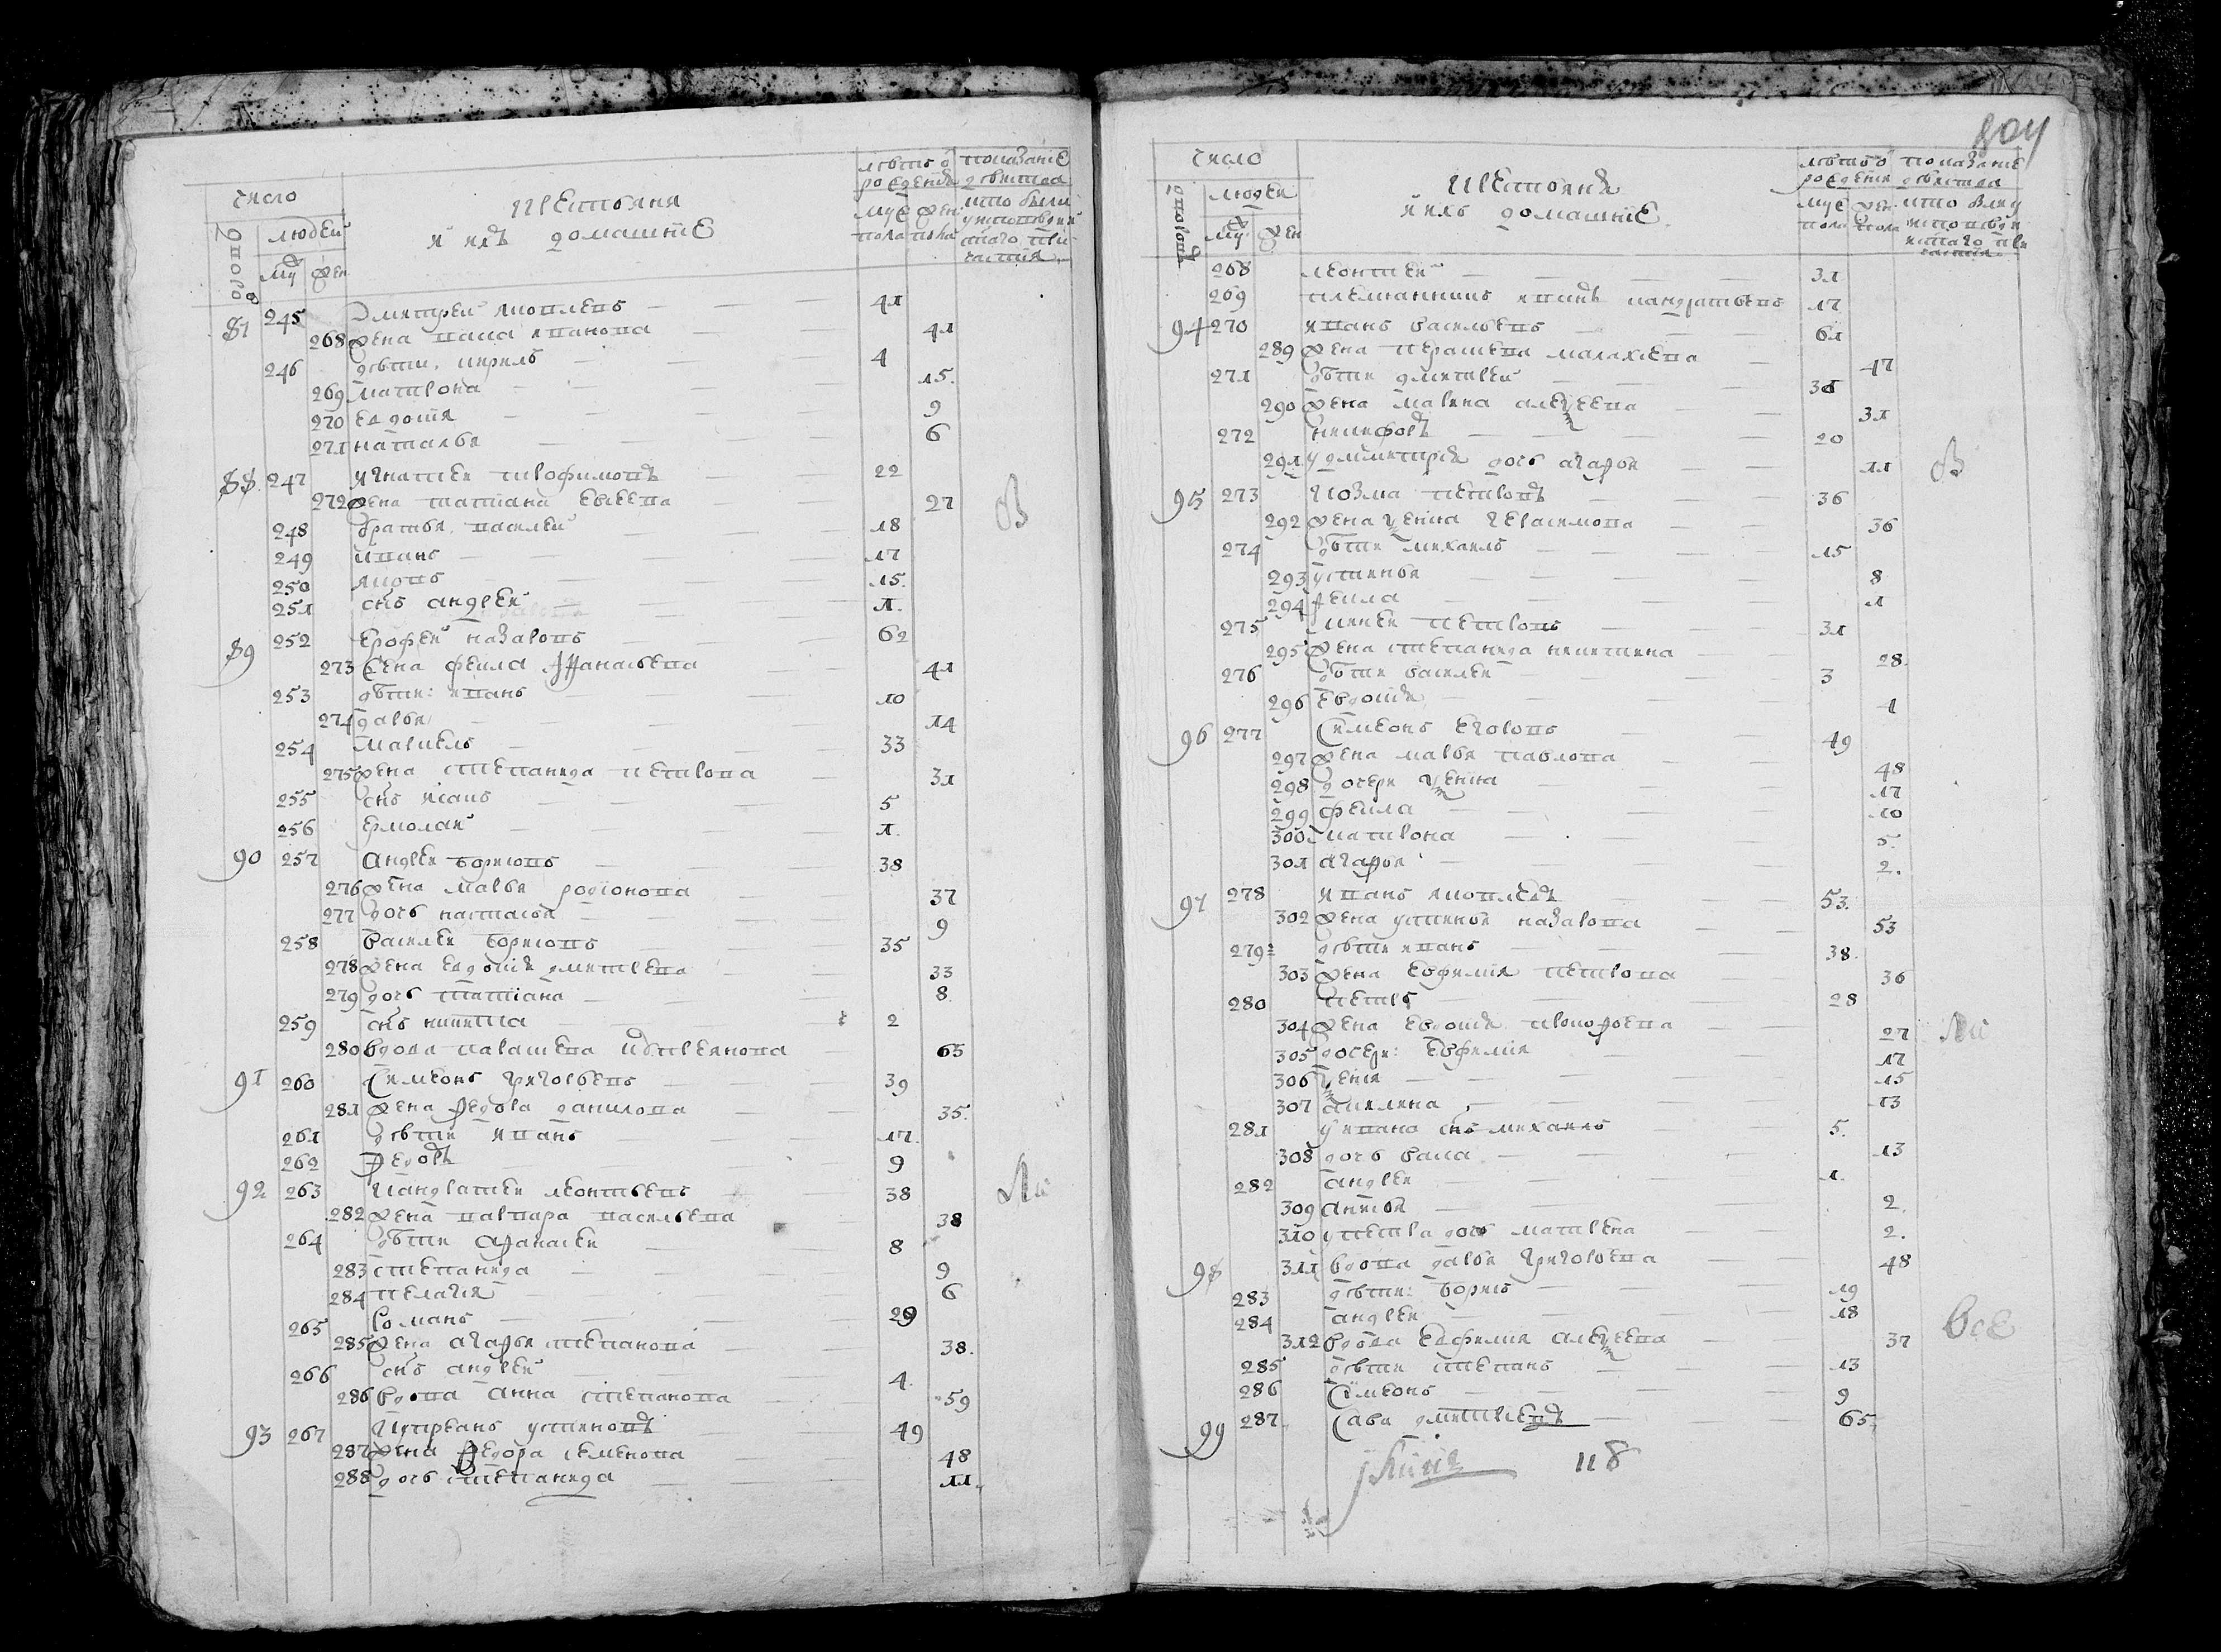 число
дворовъ
людей
му
жен
крестьяня
и ихъ домашние
леты от рождения
муж пола
жен пола
показание действа кто были у исповеди и святаго причастия
87 245 Дмитрей яковлевъ 41
268 жена васа иванова 41
246 дети, кирилъ 4
269 матрона 15
270 евдокия 9
271 наталья 6
88 247 игнатей трофимовъ 22
272 жена татиана евсеева 27 В
248 братья василей 18
249 иванъ 17
250 яковъ 15
251 снъ андрей 1
89 252 Ерофей назаровъ 62
273 жена фекла афанасьева 41
253 дети: иванъ 10
274 дарья 14
254 маркелъ 33
275 жена степанида петрова 31
255 снъ исакъ 5
256 ермолай 1
90 257 Андрей борисовъ 38
276 жена марья родионова 37
277 дочь настасья 9
258 василей борисовъ 35
278 жена евдокия дмитриева 33
279 дочь татиана 8
259 снъ никита 2
280 вдова парасковья 65
91 260 Симеонъ григорьевъ 39
281 жена федора данилова 35
261 дети иванъ 17
262 федоръ 9
92 263 Кандратей леонтьевъ 38
282 жена варвара васильева 38
264 дети афанасей 8
283 степанида 9
284 пелагия 6
265 романъ 29
285 жена агафья степанова 38
266 снъ андрей 4
286 вдова анна степанова 59
93 267 Куприянъ устиновъ 49
287 жена федора семенова 48
288 дочь степанида 11
804
число
дворовъ
людей
му
жен
крестьяня
и ихъ домашние
леты от рождения
муж пола
жен пола
показание действа кто были у исповеди и святаго причастия
268 леонтей 31
269 племянникъ иванъ кандратьевъ 17
94 270 иванъ васильевъ 61
289 жена парасковья малахиева 47
271 дети дмитрей
290 жена марина алексеева 31
272 никифоръ 20
291 у димитрия дочь агафья 11 В
95 273 козма петровъ 36
292 жена ксения герасимова 36
274 дети михаилъ 15
293 устинья 8
294 фекла 1
275 петровъ 31
295 жена степанида никитина 28
276 дети василей 3
296 евдокия 1
96 277 Симеонъ егоровъ 49
297 жена марья павлова 48
298 дочери ксения 17
299 фекла 10
300 матрона 5
301 агафья 2
97 278 иванъ яковлевъ 53
302 жена устинья назарова 53
279 дети иванъ 38
303 жена евфимия петрова 36
280 петръ 28
304 жена евдокия прокофьева 27
305 дочери: евфимия 17
306 ксения 15
307 акилина 13
281 у ивана снъ михаилъ 5
308 дочь васа 13
282 андрей 1
309 анисья 2
310 у петра дочь матрена 2
98 311 вдова дарья григорьева 48
283 дети: борисъ 19
284 андрей 18
312 вдова евфимия алексеева 37 все
285 дети степанъ 13
286 симеонъ 9
99 287 Сава дмитриевъ 65
118